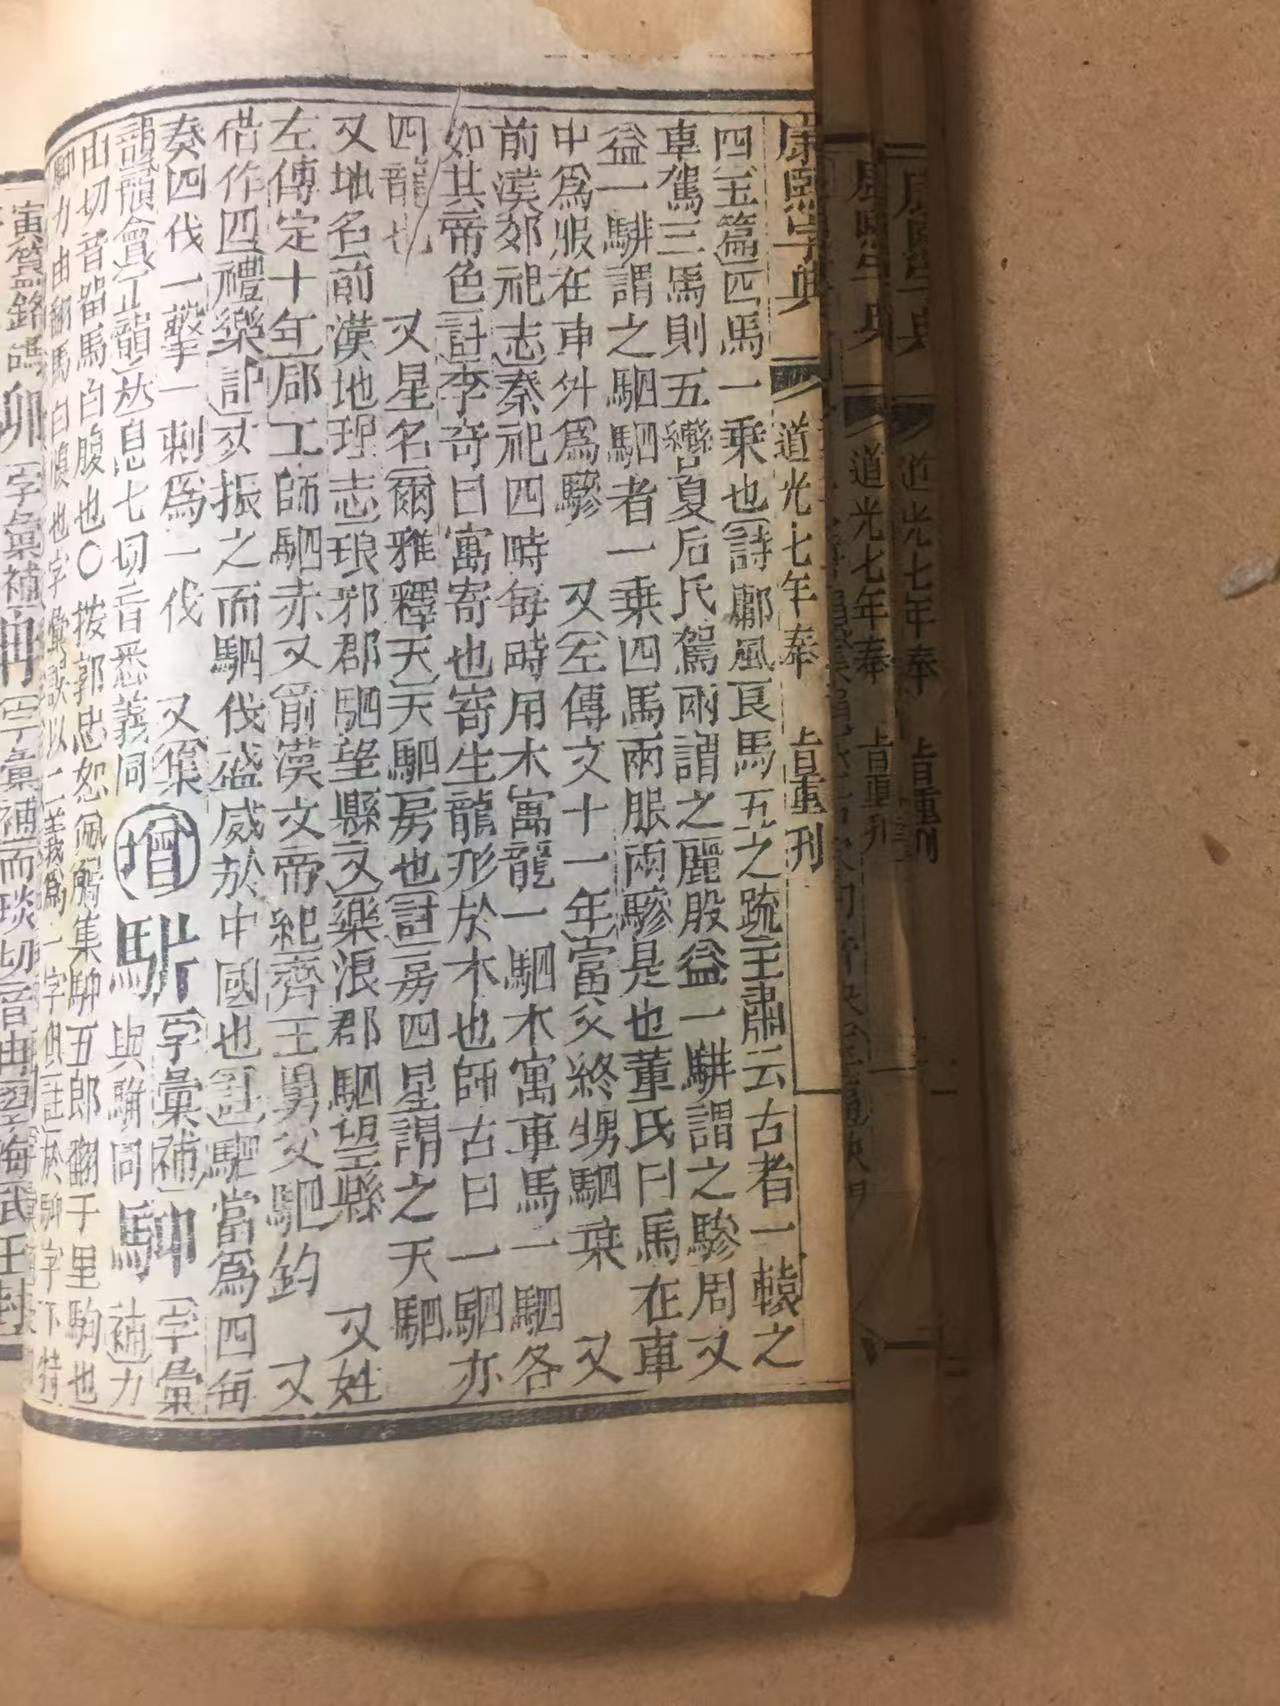 康熙字典 道光七年奉 旨重刊
四玉篇四馬一乗也詩鄘風良馬五之疏王肅云古者一轅之
車駕三馬則五轡夏后氏駕兩謂之麗殷益一騑謂之驂周又
益一騑謂之駟駟者一乗四馬兩服兩驂是也董氏曰馬在車
中爲服在車外爲驂 又左傳文十一年富父終甥駟乗 又
前漢郊祀志秦祀四時每時用木寓龍一駟木寓車馬一駟各
如其帝色註李奇曰寓寄也寄生龍形於木也師古曰一駟亦
四龍也 又星名爾雅釋天天駟房也註房四星謂之天駟
又地名前漢地理志琅邪郡駟望縣又樂浪郡駟望縣 又姓
左傳定十年郈工師駟赤又前漢文帝紀齊王舅父駟鈞 又
借作四禮樂記夾振之而駟伐盛威於中國也註駟當爲四每
奏四伐一擊一刺爲一伐 又集
韻韻會正韻𠀤息七切音悉義同 增 馸 字彙補
與騈同 𩢒 字彙
補力
由切音畱馬白腹也〇按郭忠恕佩觿集𩢒五郎翻千里駒也
力由翻馬白
也字彙
以二義爲一字俱註於
字下特
道光七年奉 旨重刊
道光七年奉 旨重刊
寅簋銘 卯 字彙補
字彙補而琰切音